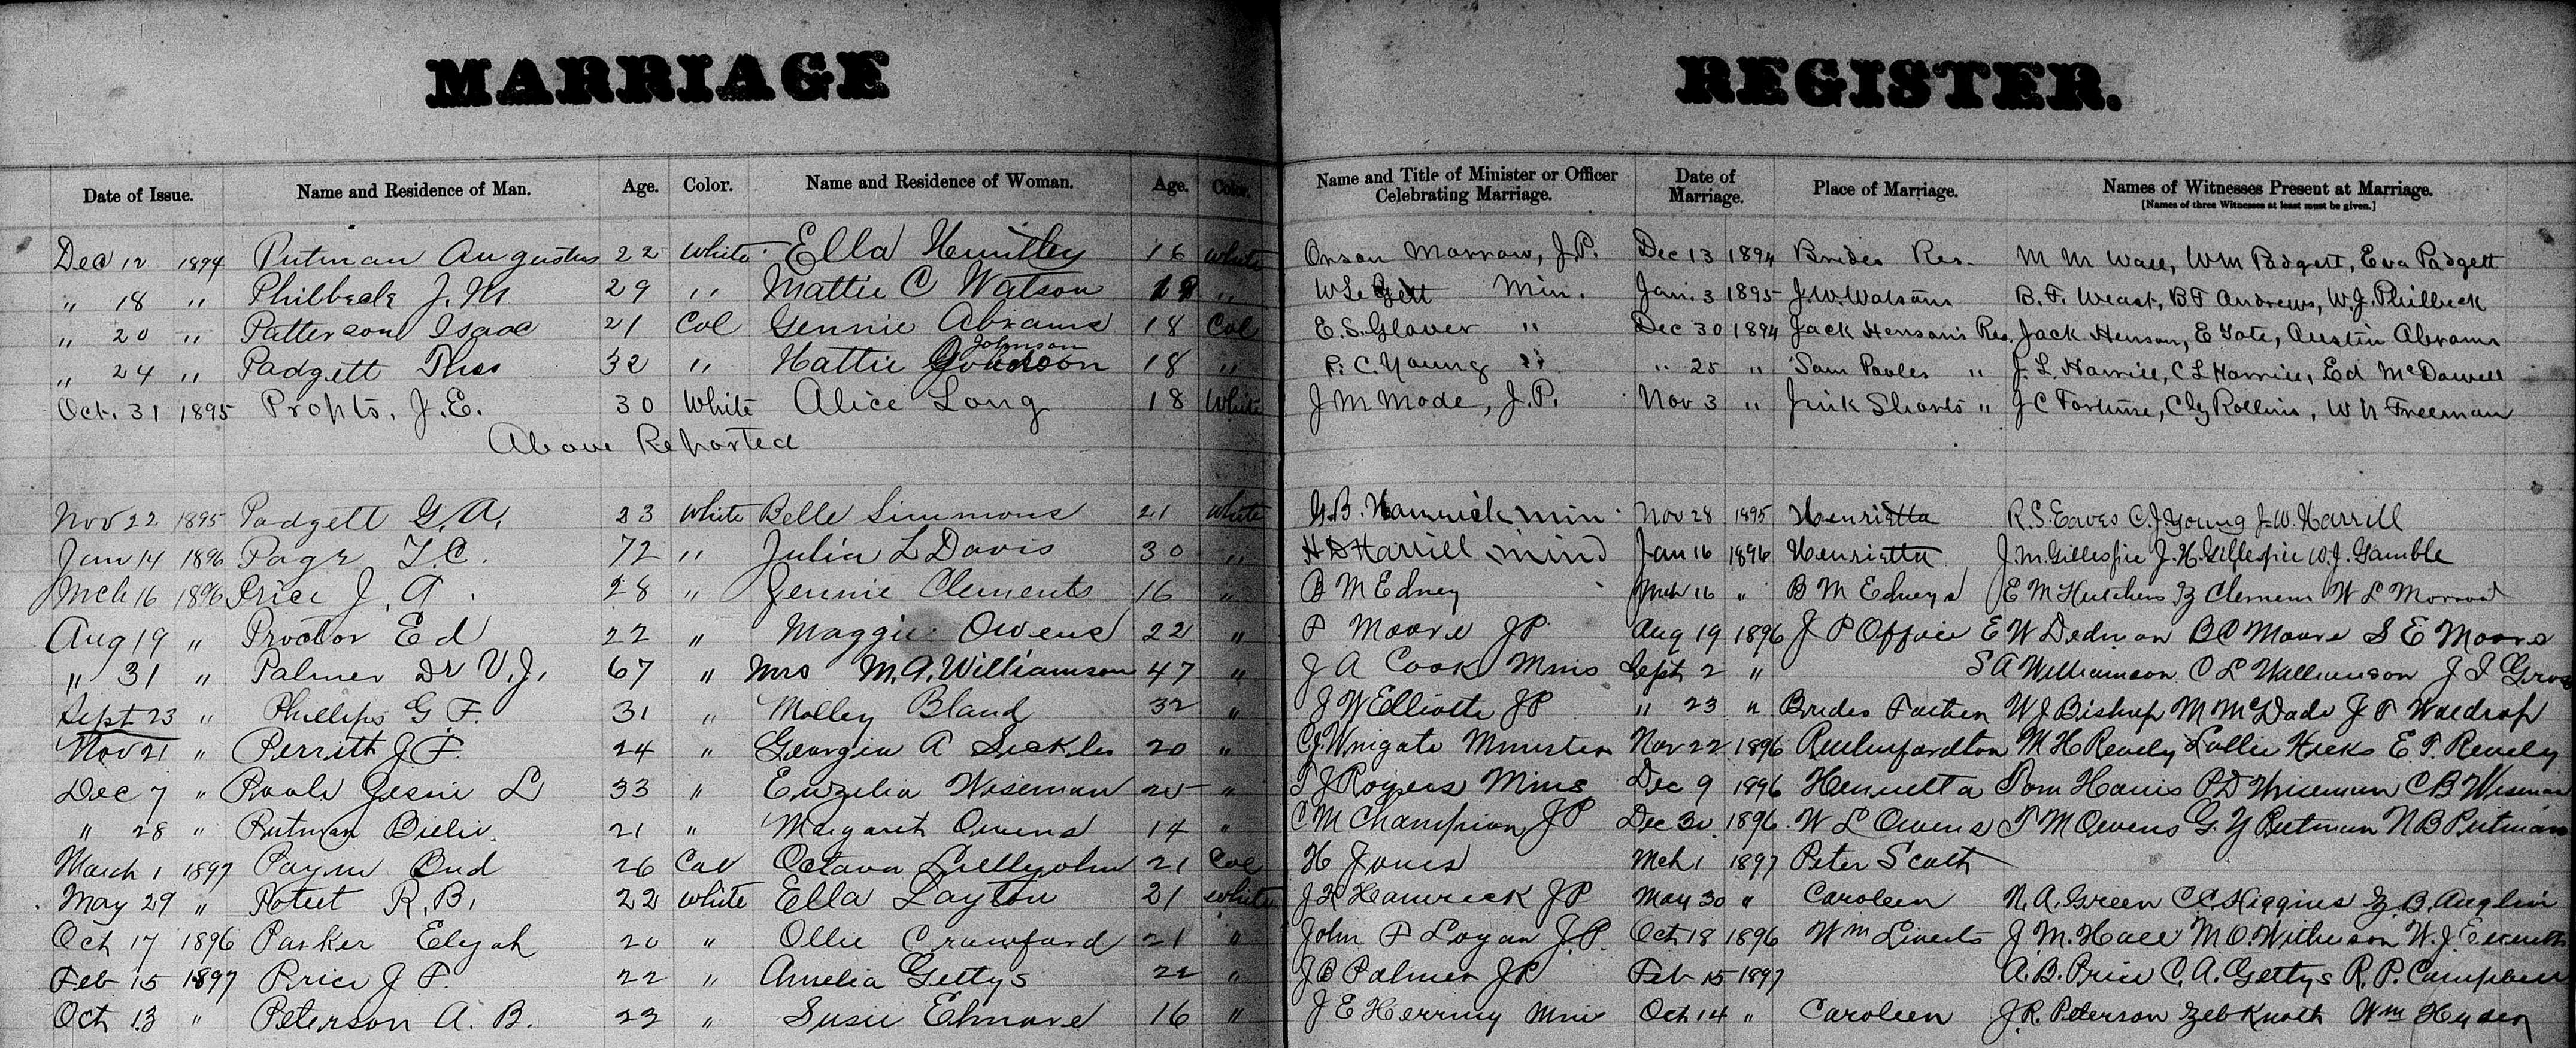 MARRIAGE REGISTER.
Date of Issue. Name and Residence of Man. Age. Color. Name and Residence of Woman. Age. Color. Name and Title of Minister or Officer Celebrating Marriage. Date of Marriage. Place of Marriage. Names of Witnesses Present at Marriage.
[Names of three Witnesses at least must be given.]
Dec 12 1894 Putman Augustus 22 White Ella Huntley 16 White Orson Morrow, J.P. Dec 13 1894 Brides Res. M M Wall, WM Padgett, Eva Padgett
" 18 " Philbeck J. M 29 " Mattie C Watson " Min. Jan. 3 1895 J.W. Watsons B. F. Weast, BF Andrews, W.J. Philbeck
" 20 " Patterson Isaac 21 Col Gennie Abrams 18 Col E. S. Glover " Dec 30 1894 Jack Henson's Res. Jack Henson, E Gate, Austin Abrams
" 24 " Padgett Thos 32 " Hattie Johnson 18 " P. C. Young " " 25 " Sam Pooles " J. L. Harrill, C L Harrill, Ed McDowell
Oct. 31 1895 Propts, J. E. 30 White Alice Long 18 White J M Mode, J.P. Nov 3 " Jink Shorts " J C Fortune, Rollins, W N Freeman
Above Reported
Nov 22 1895 Padgett G. A. 23 White Belle Simmons 21 White G. B. Hamrick Min Nov 28 1895 Henrietta R. S. Eaves C. J. Young J. W. Harrill
Jan 14 1896 Page T. C. 72 " Julia L Davis 30 " H D Harrill Min Jan 16 1896 Henrietta J. M. Gillespie J. H. Gillespie W. J. Gamble
Mch 16 1896 Price J. A. 28 " Jennie Clements 16 " B M Edney Mch 16 " B M Edneys E M Hutchins Z Clemens W L Morrow
Aug 19 " Proctor Ed 22 " Maggie Owens 22 " P Moore JP Aug 19 1896 J P Office E W Dedmon B C Moore S E Moore
" 31 " Palmer Dr V. J. 67 " Mrs M. A. Williamson 47 " J A Cook Mins Sept 2 " S A Williamson C L Williamson J I
Sept 23 " Phillips G F. 31 " Molley Bland 32 " J W Elliotte JP " 23 " Brides Father W J Bishop M McDade J T Waldrop
Nov 21 " Perritt J F. 24 " Georgia A Sickles 20 " C. J. Wrigate Minister Nov 22 1896 Rutherfordton M H Revely Lollie Hicks E. T. Revely
Dec 7 " Poole Jessie L 33 " Euzelia Wiseman 25 " T J Rogers Mins Dec 9 1896 Henrietta Tom Harris P D Wiseman C B Wiseman
" 28 " Putman 21 " Margaret Owens 14 " C M Champion JP Dec 30 1896 W L Owens T M Owens G. Y Putman N B Putman
March 1 1897 Payne Bud 26 Col Octava Littlejohn 21 Col H Jones Mch 1 1897 Peter Scott
May 29 " Poteet R. B. 22 White Ella Layton 21 White J H Hamrick JP May 30 " Caroleen N. A. Green C C Higgins Z. B. Anglin
Oct 17 1896 Parker Elijah 20 " Ollie Crawford 21 " John P Logan J. P. Oct 18 1896 Wm J. M. Hall M. O. W. J.
Feb 15 1897 Price J F. 22 " Amelia Gettys 22 " J B Palmer JP Feb 15 1897 A. B. Price C. A. Gettys R. P. Campbell
Oct 13 " Peterson A. B. 23 " Susie Elmore 16 " J E Herring Min Oct 14 " Caroleen J. R. Peterson Zeb Wm